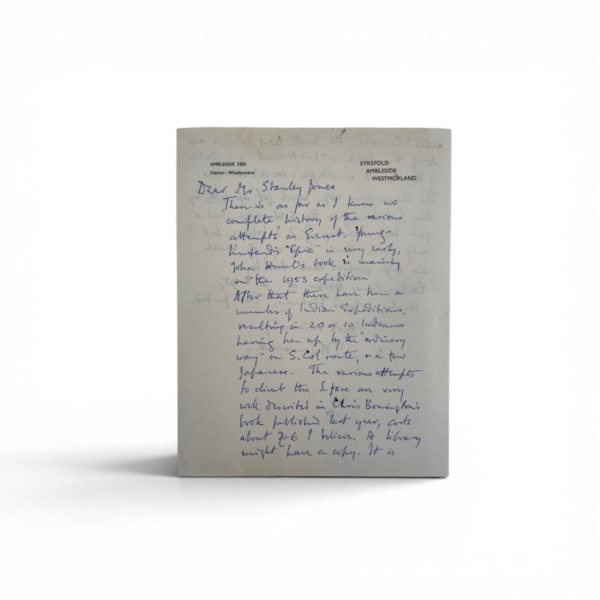 AMBLESIDE
Station - Windermere
SYKEFOLD
AMBLESIDE
WESTMORLAND
Dear Mr. Stanley Jones
There is as far as I know no
complete history of the various
attempts on Everest. Young-
husband's "Epic" is very early,
John Hunt's book is mainly
on the 1953 expedition
After that there have been a
number of Indian Expeditions,
resulting in 20 or so Indians
having been up by the "ordinary
way" or S. Col route, & a few
Japanese. The various attempts
to climb the S face are very
well described in Chris Bonington's
book published last year, costs
about £6 I believe. A library
might have a copy. It is